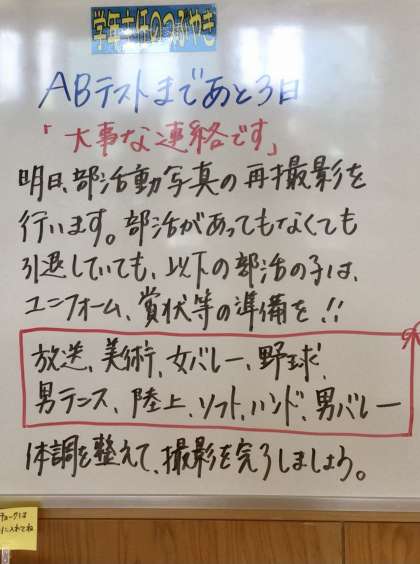 学年主任のつぶやき
ABテストまであと3日
「大事な連絡です」
明日、部活動写真の再撮影を
行います。部活があってもなくても
引退していても、以下の部活の子は、
ユニフォーム、賞状等の準備を!!
放送、美術、女バレー、野球、
男テニス、陸上、ソフト、ハンド、男バレー
体調を整えて、撮影を完了しましょう。
チョークは
に入れてね